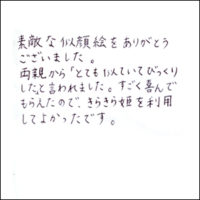 素敵な似顔絵をありがとう
ございました。
両親から「とても似ていてびっくり
した」と言われました。すごく喜んで
もらえたので、きらきら姫を利用
してよかったです。